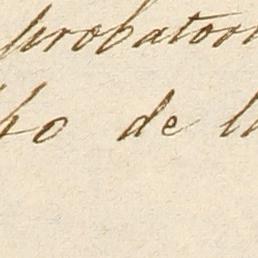 probator
po de l